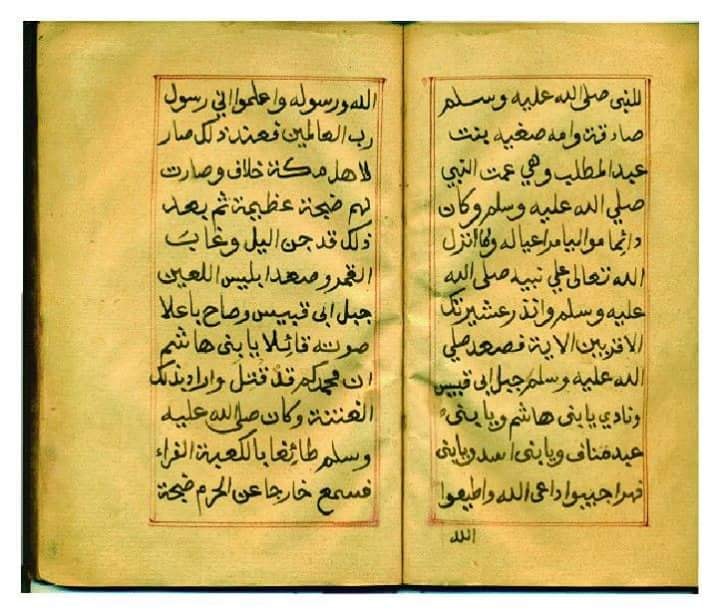 للنبى صلى الله عليه وسلم
صادقة وامه صغيه بنت
عبد المطلب وهي عمت النبي
صلي الله عليه وسلم وكان
دائما مواليا مراعيا له ولما انزل
الله تعالى على نبيه صلى الله
عليه وسلم وانذر عشيرتك
الاقربين الاية فصعد صلي
الله عليه وسلم جبل ابى قبيس
ونادي يا بنى هاشم ويا بنى
عبد مناف ويا بنى اسد ويا بنى
فهر اجيبوا داعى الله واطيعوا
الله
الله ورسوله واعلموا اني رسول
رب العالمين فعند ذلك صار
لاهل مكة خلاف وصارت
لهم ضجة عظيمة ثم بعد
ذلك قد جن اليل وغاب
القمر وصعد ابليس اللعين
جبل ابى قبيس وصاح باعلا
صوته قائلا يا بنى هاشم
ان محمدكم قد قتل واراد بذلك
الفتنة وكان صلى الله عليه
وسلم طائفا بالكعبة الغراء
فسمع خارجا عن الحرم ضجة